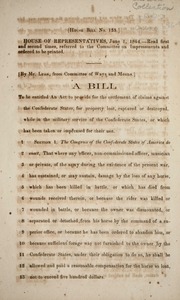 Collection
[HOUSE BILL No. 133.]
HOUSE OF REPRESENTATIVES, June 7, 1864.—Read first
and second times, referred to the Committee on Impressments and
ordered to be printed.
[By Mr. LYON, from Committee of Ways and Means.]
A BILL
To be entitled An Act to provide for the settlement of claims against
the Confederate States, for property lost, captured or destroyed,
while in the military service of the Confederate States, or which
has been taken or impressed for their use.
1 SECTION 1. The Congress of the Confederate States of America do
2 enact, That where any officer, non-commissioned officer, musician
3 or private, of the army during the existence of the present war
4 has sustained, or may sustain, damage by the loss of any horse,
5 which has been killed in battle, or which has died from
6 wounds received therein, or because the rider was killed or
7 wounded in battle, or because the owner was dismounted, or
8 separated or detached from his horse by the command of a su-
9 perior officer, or because he has been ordered to abandon him, or
10 because sufficient forage was not furnished to the owner by the
11 Confederate States, under their obligation to do so, he shall be
12 allowed and paid a reasonable compensation for the horse so lost,
13 not to exceed five hundred dollars